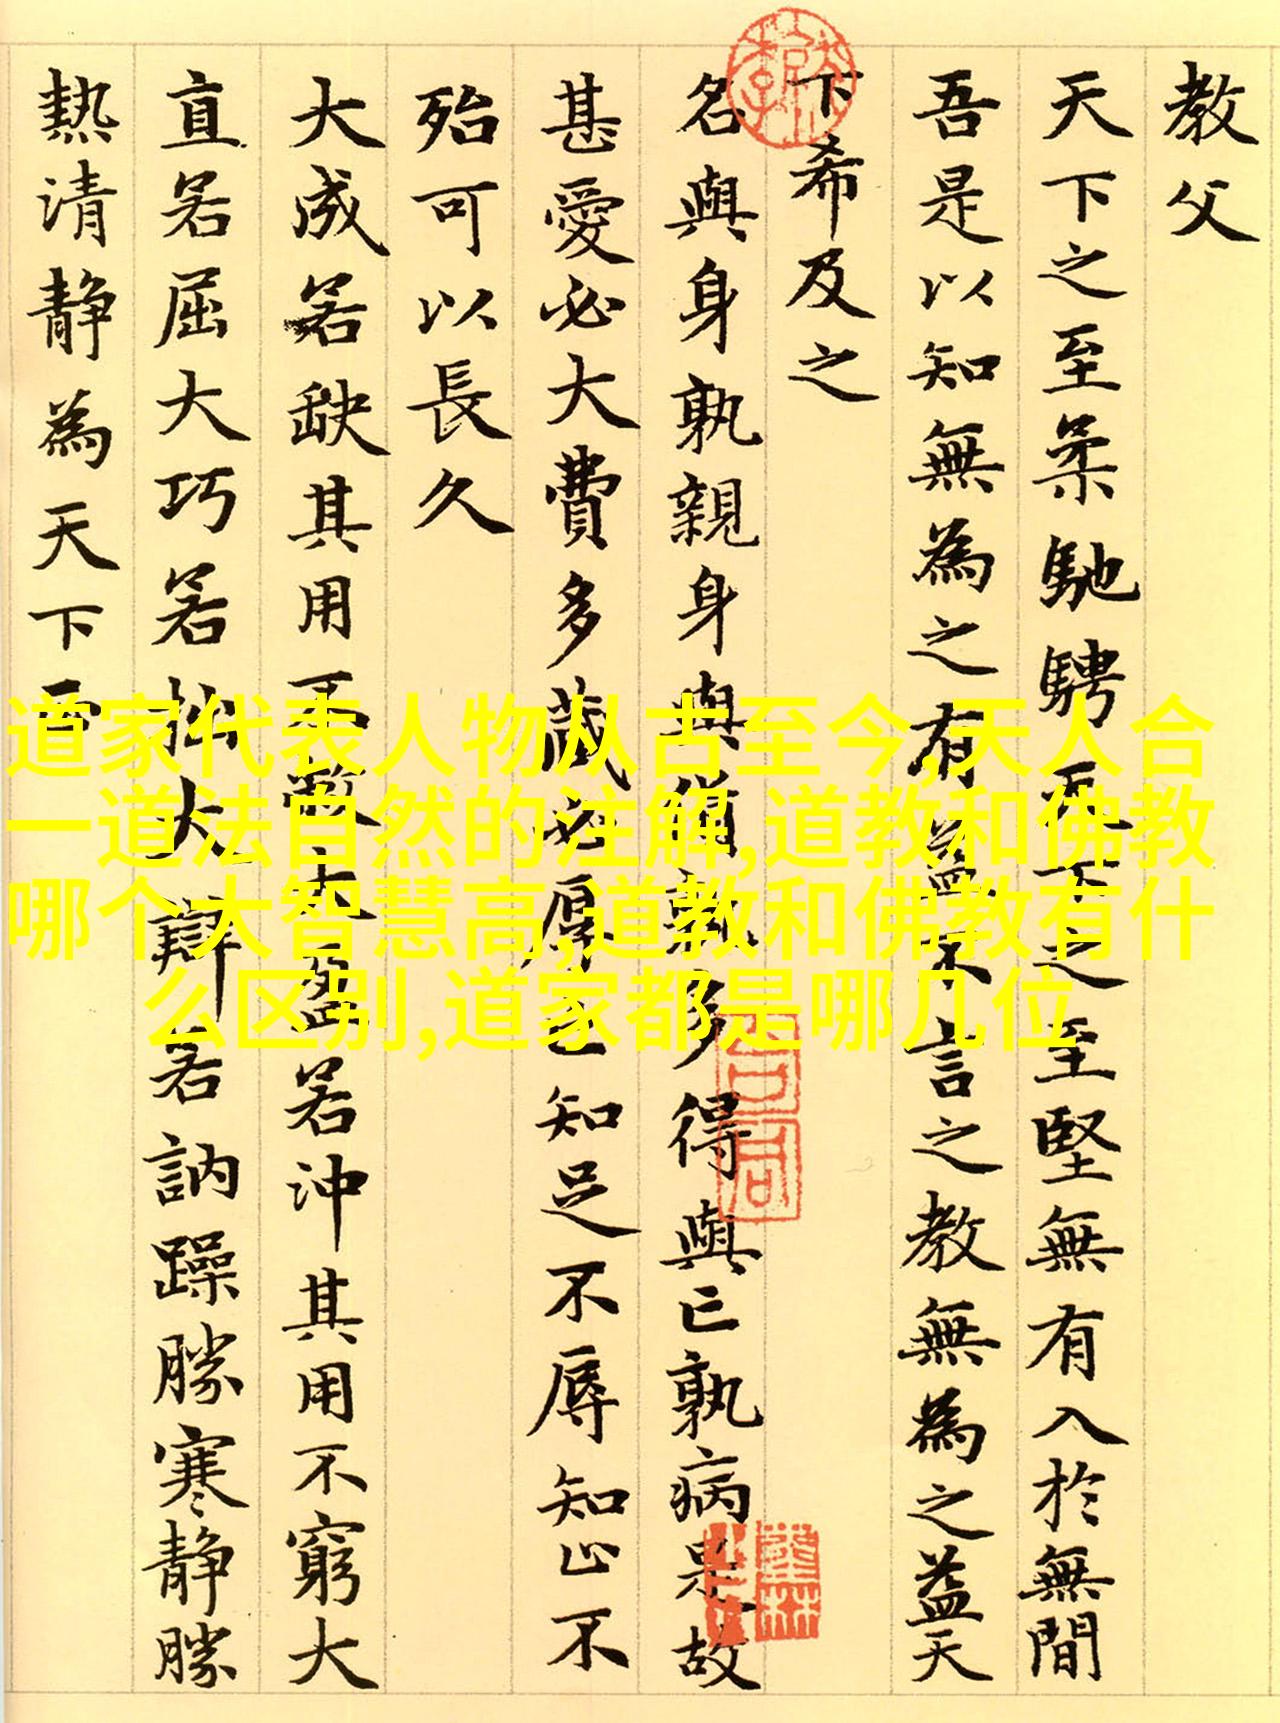 教父
天下之至柔馳騁天下之至堅無有入於無間
吾是以知無為之有益不言之教無為之益天
下希及之
名與身孰親身與貨孰多得與亡孰病是故
甚愛必大費多藏必厚亡知足不辱知止不
殆可以長久
大成若缺其用不敝大盈若沖其用不窮大
直若屈大巧若拙大辯若訥躁勝寒静勝
熱清静為天下正
道家代表人物从古至今,天人合
一道法自然的注解,道教和佛教
哪个大智慧高,道教和佛教有什
么区别,道家都是哪几位